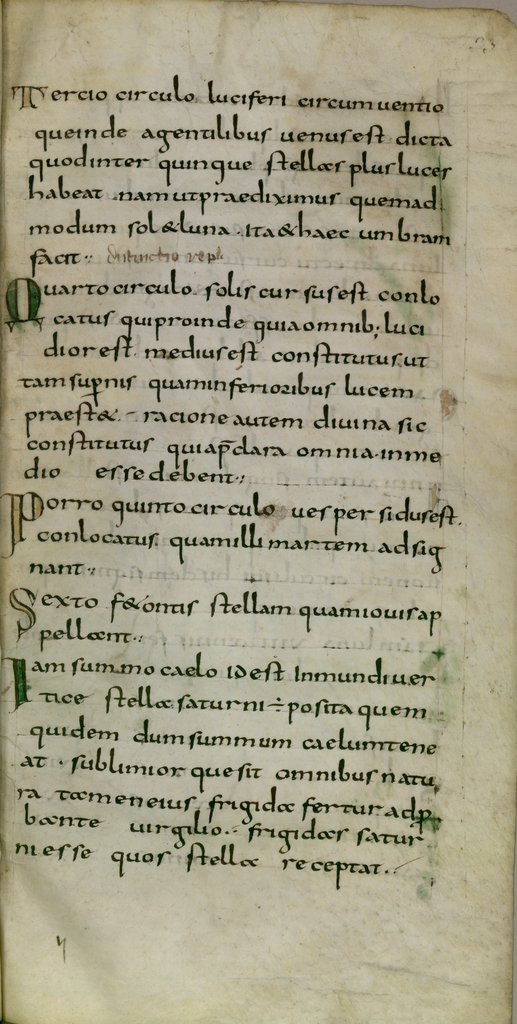 Tercio circulo luciferi circumventio
queinde agentilibus uenus est dicta
quod inter quinque stellas plus luces
habeat. nam ut praediximus quemad
modum sol & luna. Ita & haec umbram
facit :
Quarto circulo solis cursus est conlo
catus qui proinde quia omnib; luci
dior est. medius est constitutus ut
tam supernis quam inferioribus lucem
praest&. racione autem diuina sic
constitutus quia p̄clara omnia. in me
dio esse debent :
Porro quinto circulo uesper sidus est.
conlocatus quam illi martem adsig
nant :
Sexto f&ontis stellam quam iouis ap
pellant :
Iam summo caelo id est In mundi uer
tice stella saturni ÷ posita quem
quidem dum summum caelum tene
at. sublimiorque sit omnibus natu
ra tamen eius frigida fertur adp̄
bante uirgilio. frigidas satur
ni esse quos stella receptat.